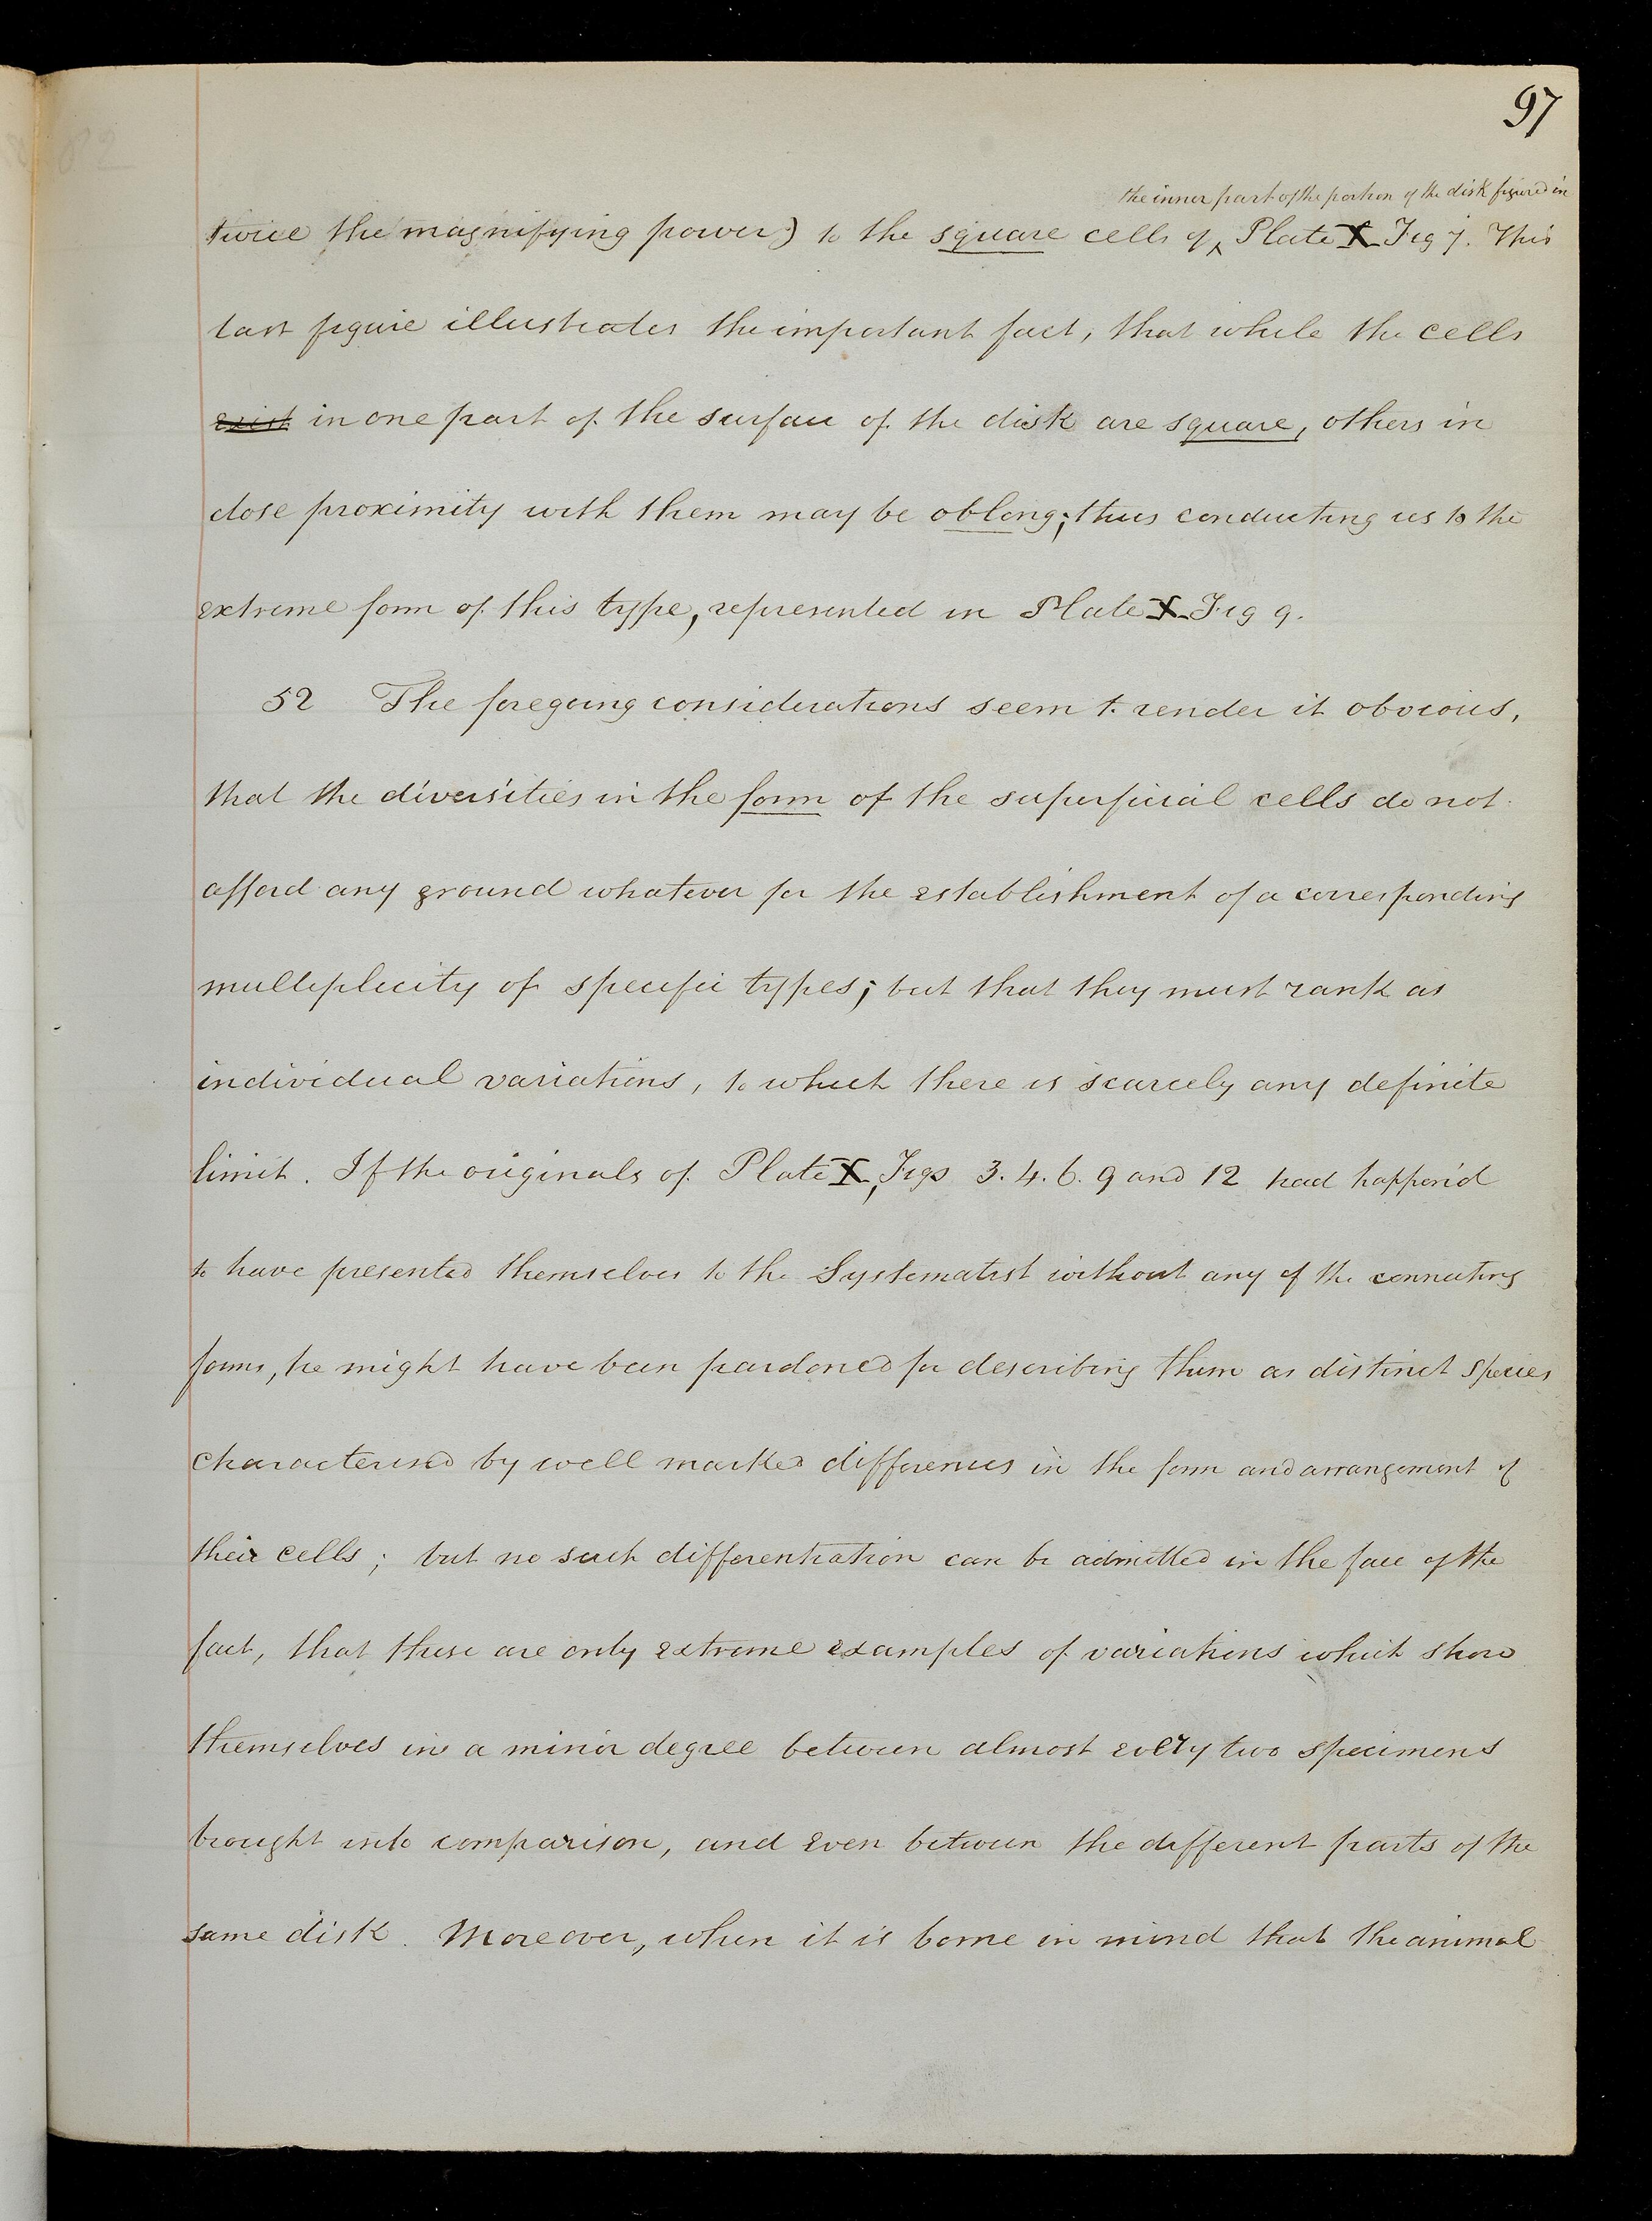 97
the inner part of the portion of the disk figured in
twice the magnifying power) to the square cells of ‸ Plate X Fig 7. This
last figure illustrates the important fact, that while the cells
exist in one part of the surface of the disk are square, others in
close proximity with them may be oblong; thus conducting us to the
extreme form of this type, represented in Plate X Fig 9.
52 The foregoing considerations seem to render it obvious,
that the diversities in the form of the superficial cells do not
afford any ground whatever for the establishment of a corresponding
multiplicity of specific types; but that they must rank as
individual variations, to which there is scarcely any definite
limit. If the originals of Plate X, Figs 3. 4. 6. 9 and 12 had happen'd
to have presented themselves to the Systematist without any of the connecting
forms, he might have been pardoned for describing them as distinct species
characterised by well marked differences in the form and arrangement of
their cells; but no such differentiation can be admitted in the face of the
fact, that these are only extreme examples of variations which show
themselves in a minor degree between almost every two specimens
brought into comparison, and even between the different parts of the
same disk. Moreover, when it is borne in mind that the animal